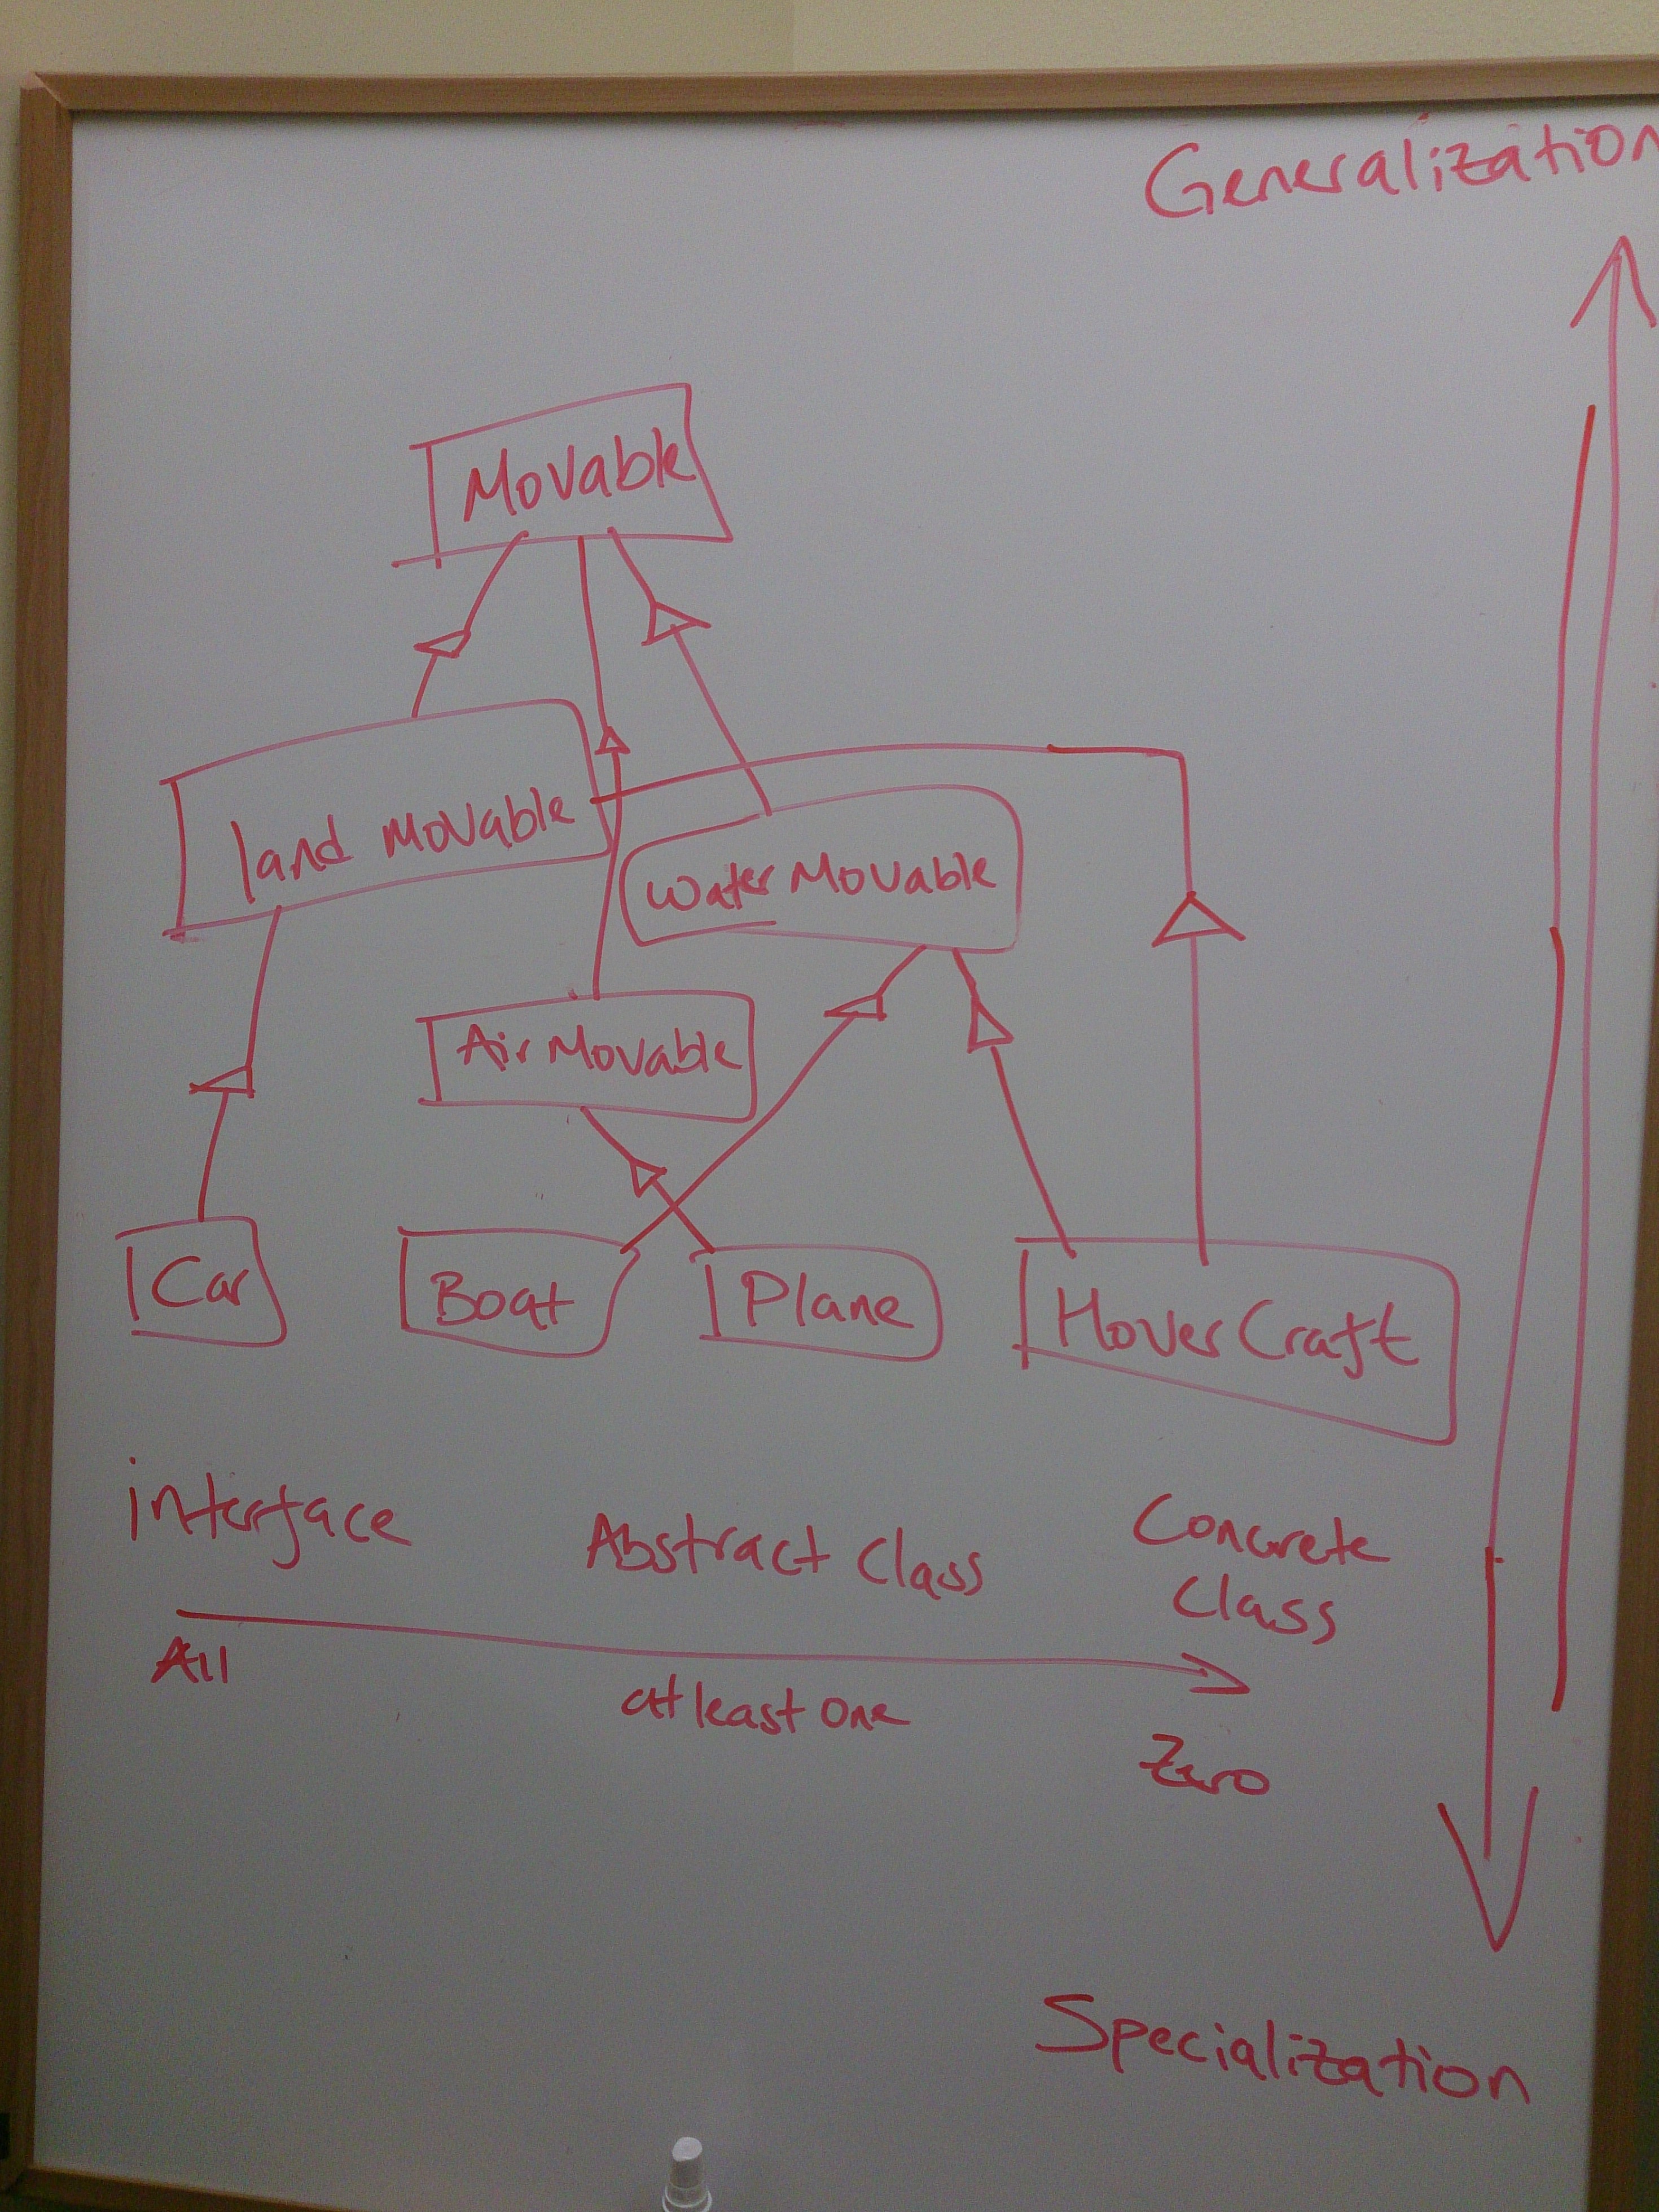 Generalization
Movable
land Movable
Water Movable
Air Movable
Car
Boat
Plane
Hover Craft
interface
Abstract Class
Concrete
Class
All
at least one
Zero
Specialization